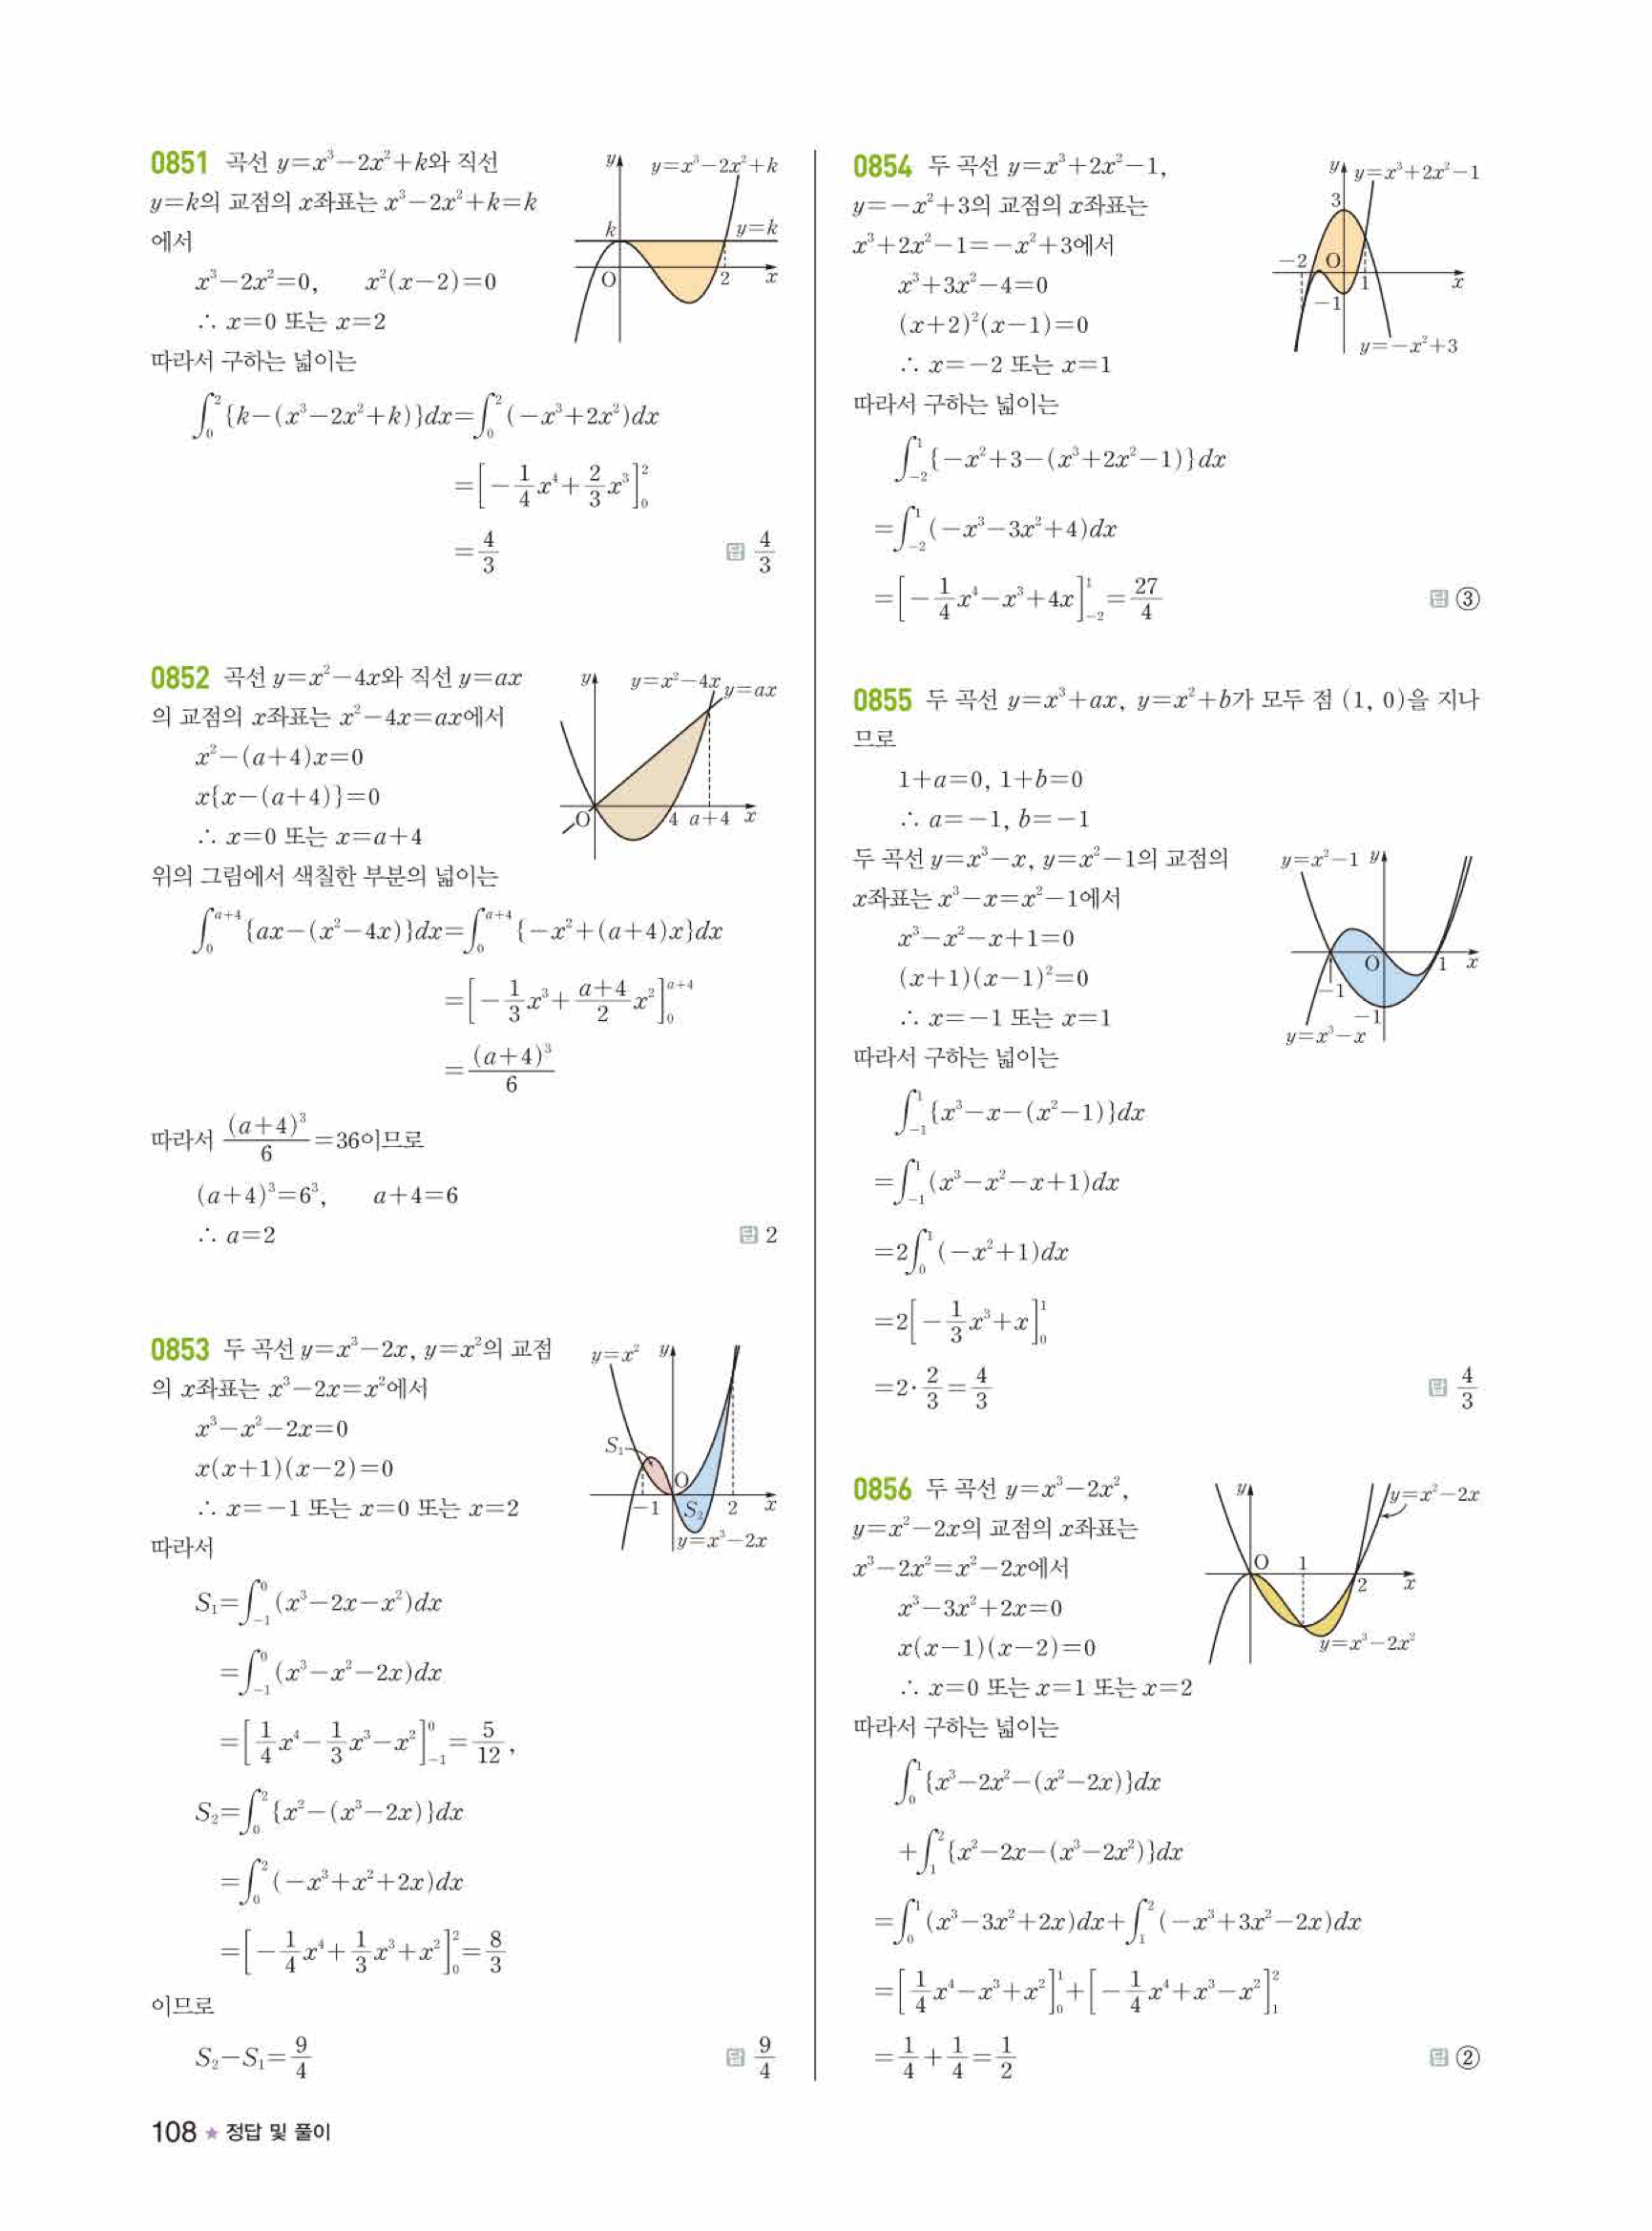 0851 곡선 y=x³−2x²+k와 직선
y=k의 교점의 x좌표는 x³−2x²+k=k
에서
x³−2x²=0, x²(x−2)=0
∴ x=0 또는 x=2
y
y=x³−2x²+k
k
y=k
O
2
x
따라서 구하는 넓이는
∫₀²{k−(x³−2x²+k)}dx=∫₀²(−x³+2x²)dx
=[−1/4x⁴+2/3x³]₀²
=4/3
답 4/3
0852 곡선 y=x²−4x와 직선 y=ax
의 교점의 x좌표는 x²−4x=ax에서
x²−(a+4)x=0
x{x−(a+4)}=0
∴ x=0 또는 x=a+4
y
y=x²−4x
y=ax
O
4 a+4 x
위의 그림에서 색칠한 부분의 넓이는
∫₀ᵃ⁺⁴{ax−(x²−4x)}dx=∫₀ᵃ⁺⁴{−x²+(a+4)x}dx
=[−1/3x³+(a+4)/2x²]₀ᵃ⁺⁴
=(a+4)³/6
따라서 (a+4)³/6=36이므로
(a+4)³=6³, a+4=6
∴ a=2
답 2
0853 두 곡선 y=x³−2x, y=x²의 교점
의 x좌표는 x³−2x=x²에서
x³−x²−2x=0
x(x+1)(x−2)=0
∴ x=−1 또는 x=0 또는 x=2
y=x²
y
S₁
O
−1
S₂
2
x
y=x³−2x
따라서
S₁=∫₋₁⁰(x³−2x−x²)dx
=∫₋₁⁰(x³−x²−2x)dx
=[1/4x⁴−1/3x³−x²]₋₁⁰=5/12,
S₂=∫₀²{x²−(x³−2x)}dx
=∫₀²(−x³+x²+2x)dx
=[−1/4x⁴+1/3x³+x²]₀²=8/3
이므로
S₂−S₁=9/4
답 9/4
0854 두 곡선 y=x³+2x²−1,
y=−x²+3의 교점의 x좌표는
x³+2x²−1=−x²+3에서
x³+3x²−4=0
(x+2)²(x−1)=0
∴ x=−2 또는 x=1
y
y=x³+2x²−1
3
−2
O
1
x
−1
y=−x²+3
따라서 구하는 넓이는
∫₋₂¹{−x²+3−(x³+2x²−1)}dx
=∫₋₂¹(−x³−3x²+4)dx
=[−1/4x⁴−x³+4x]₋₂¹=27/4
답 ③
0855 두 곡선 y=x³+ax, y=x²+b가 모두 점 (1, 0)을 지나
므로
1+a=0, 1+b=0
∴ a=−1, b=−1
두 곡선 y=x³−x, y=x²−1의 교점의
x좌표는 x³−x=x²−1에서
x³−x²−x+1=0
(x+1)(x−1)²=0
∴ x=−1 또는 x=1
y=x²−1
y
O
1
x
−1
−1
y=x³−x
따라서 구하는 넓이는
∫₋₁¹{x³−x−(x²−1)}dx
=∫₋₁¹(x³−x²−x+1)dx
=2∫₀¹(−x²+1)dx
=2[−1/3x³+x]₀¹
=2·2/3=4/3
답 4/3
0856 두 곡선 y=x³−2x²,
y=x²−2x의 교점의 x좌표는
x³−2x²=x²−2x에서
x³−3x²+2x=0
x(x−1)(x−2)=0
∴ x=0 또는 x=1 또는 x=2
y
y=x²−2x
O
1
2
x
y=x³−2x²
따라서 구하는 넓이는
∫₀¹{x³−2x²−(x²−2x)}dx
+∫₁²{x²−2x−(x³−2x²)}dx
=∫₀¹(x³−3x²+2x)dx+∫₁²(−x³+3x²−2x)dx
=[1/4x⁴−x³+x²]₀¹+[−1/4x⁴+x³−x²]₁²
=1/4+1/4=1/2
답 ②
108 ★ 정답 및 풀이